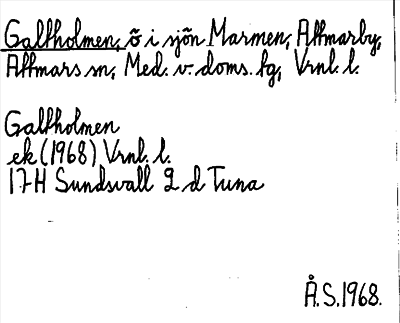 Galtholmen, ö i sjön Marmen, Attmarby,
Attmars sn, Med. v. doms. tg, Vrnl. l.
Galtholmen
ek (1968) Vrnl. l.
17H Sundsvall 2 d Tuna
Å.S. 1968.